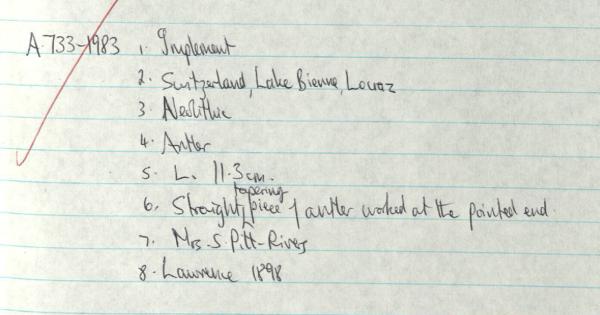 A.733-1983 1. Implement
2. Switzerland, Lake Bienne, Locraz
3. Neolithic
4. Antler
5. L. 11.3cm.
6. Straight, tapering piece of antler worked at the pointed end.
7. Mrs. S. Pitt-Rivers
8. Lawrence 1898